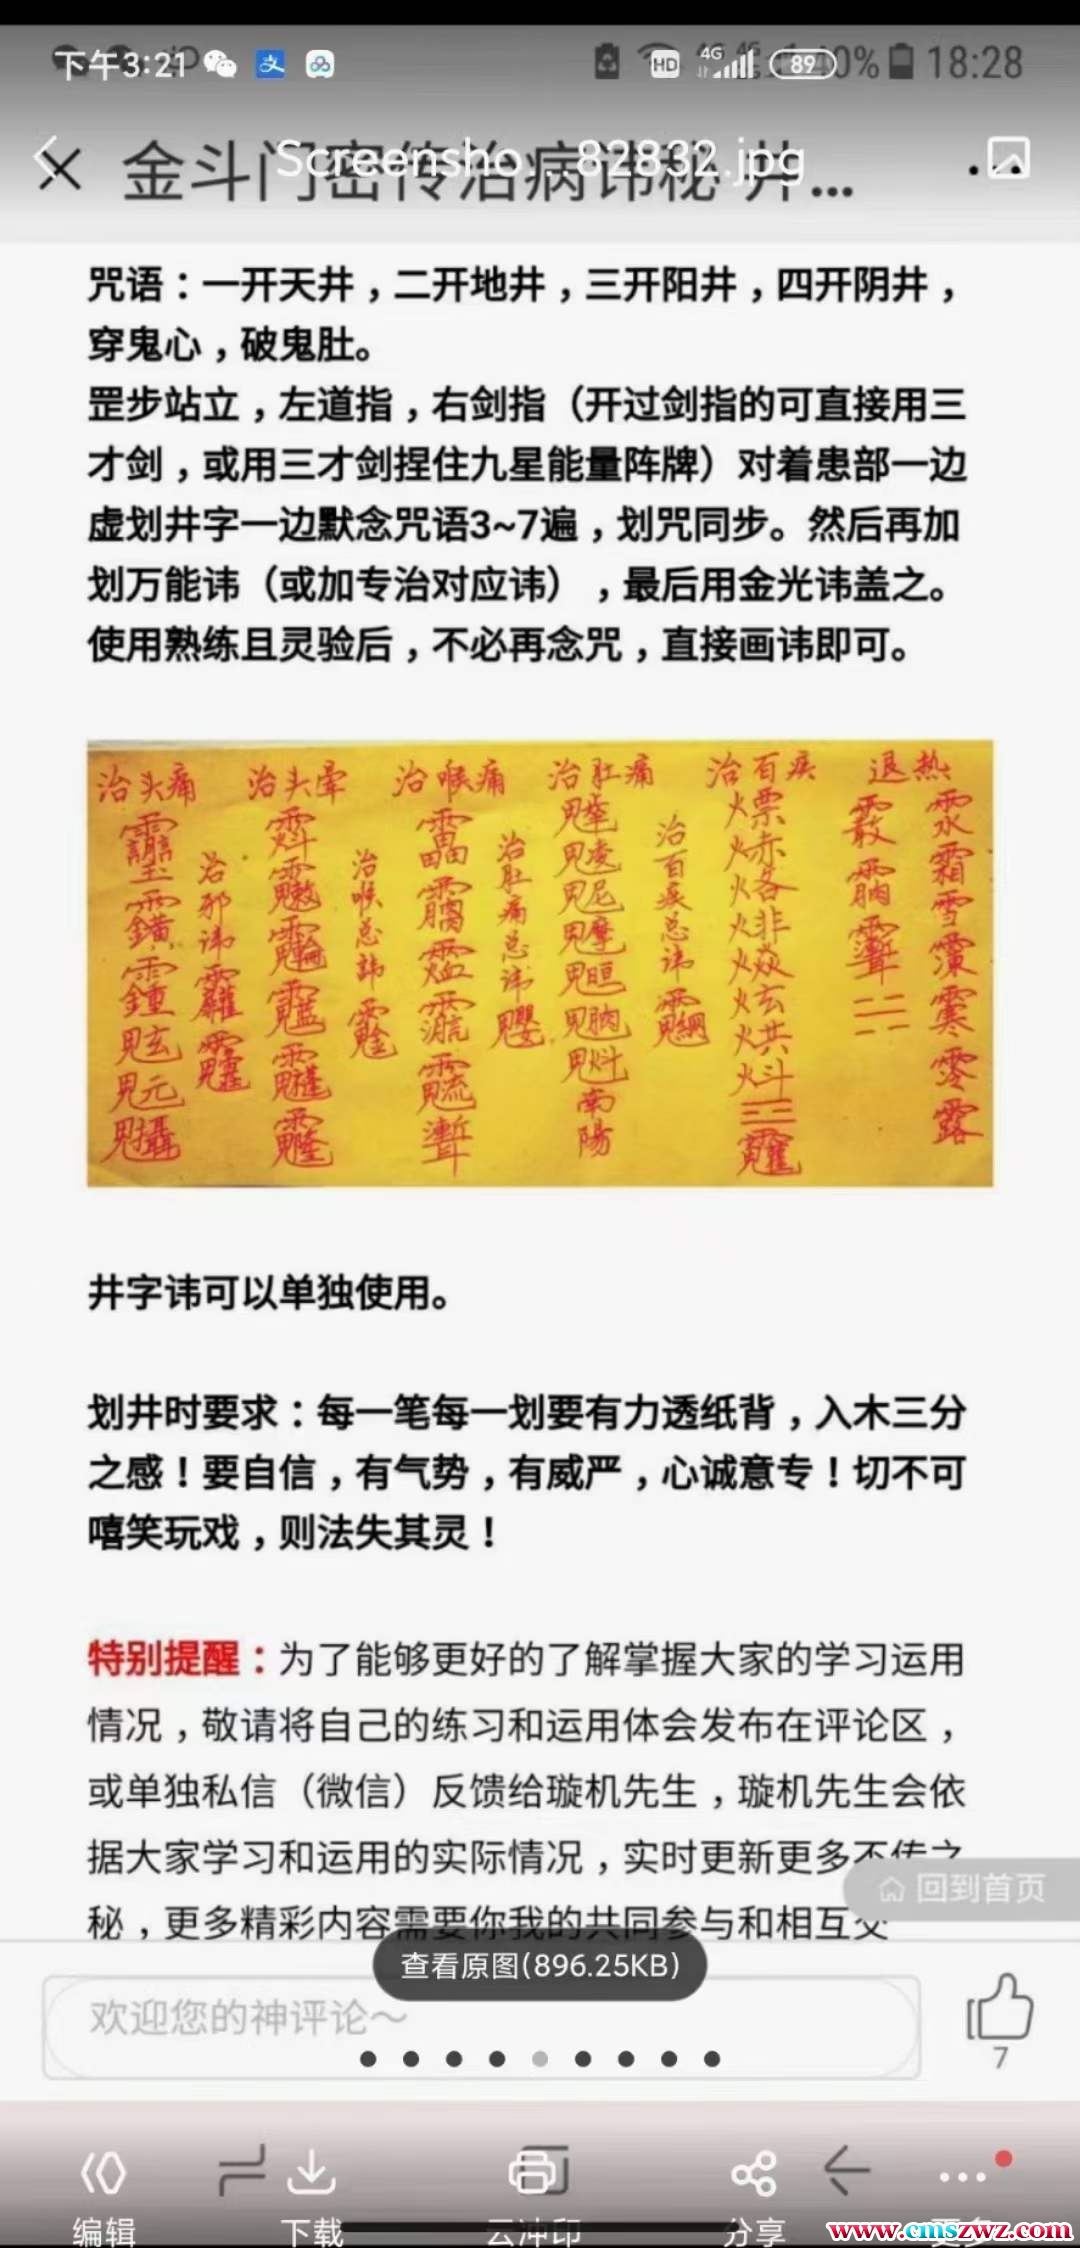 下午3:21
HD 4G 89
40% 18:28
Screensho...82832.jpg
金斗门密传治病讳秘 井...
咒语：一开天井，二开地井，三开阳井，四开阴井，
穿鬼心，破鬼肚。
罡步站立，左道指，右剑指（开过剑指的可直接用三
才剑，或用三才剑捏住九星能量阵牌）对着患部一边
虚划井字一边默念咒语3~7遍，划咒同步。然后再加
划万能讳（或加专治对应讳），最后用金光讳盖之。
使用熟练且灵验后，不必再念咒，直接画讳即可。
治头痛
治邪讳
治头晕
治喉总讳
治喉痛
治肚痛总讳
治肚痛
南陽
治百疾总讳
治百疾
退热
霜雪
零露
井字讳可以单独使用。
划井时要求：每一笔每一划要有力透纸背，入木三分
之感！要自信，有气势，有威严，心诚意专！切不可
嘻笑玩戏，则法失其灵！
特别提醒：为了能够更好的了解掌握大家的学习运用
情况，敬请将自己的练习和运用体会发布在评论区，
或单独私信（微信）反馈给璇机先生，璇机先生会依
据大家学习和运用的实际情况，实时更新更多不传之
秘，更多精彩内容需要你我的共同参与和相互交
回到首页
查看原图(896.25KB)
欢迎您的神评论～
7
编辑
下载
云冲印
分享
更多
www.cmszwz.com